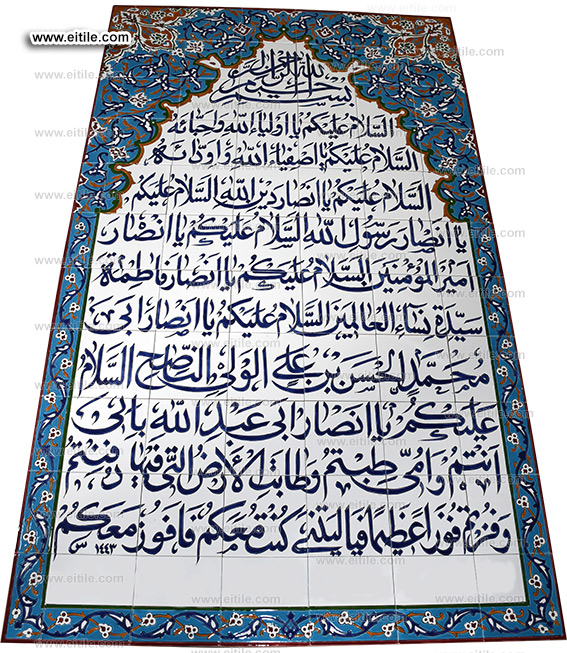 www.eitile.com
بسم الله الرحمن الرحيم
السلام عليكم يا اولياء الله واحبائه
السلام عليكم يا اصفياء الله واودائه
السلام عليكم يا انصار دين الله السلام عليكم
يا انصار رسول الله السلام عليكم يا انصار
امير المؤمنين السلام عليكم يا انصار فاطمة
سيدة نساء العالمين السلام عليكم يا انصار ابي
محمد الحسن بن علي الولي الناصح السلام
عليكم يا انصار ابي عبد الله بابي
انتم وامي طبتم وطابت الارض التي فيها دفنتم
وفزتم فوزا عظيما فيا ليتني كنت معكم فافوز معكم
١٤٤٣